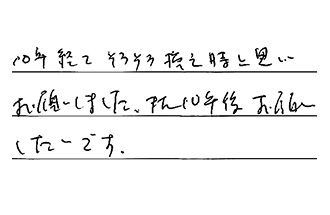 10年経てそろそろ換え時と思い
お願いしました、また10年後お願い
したいです.